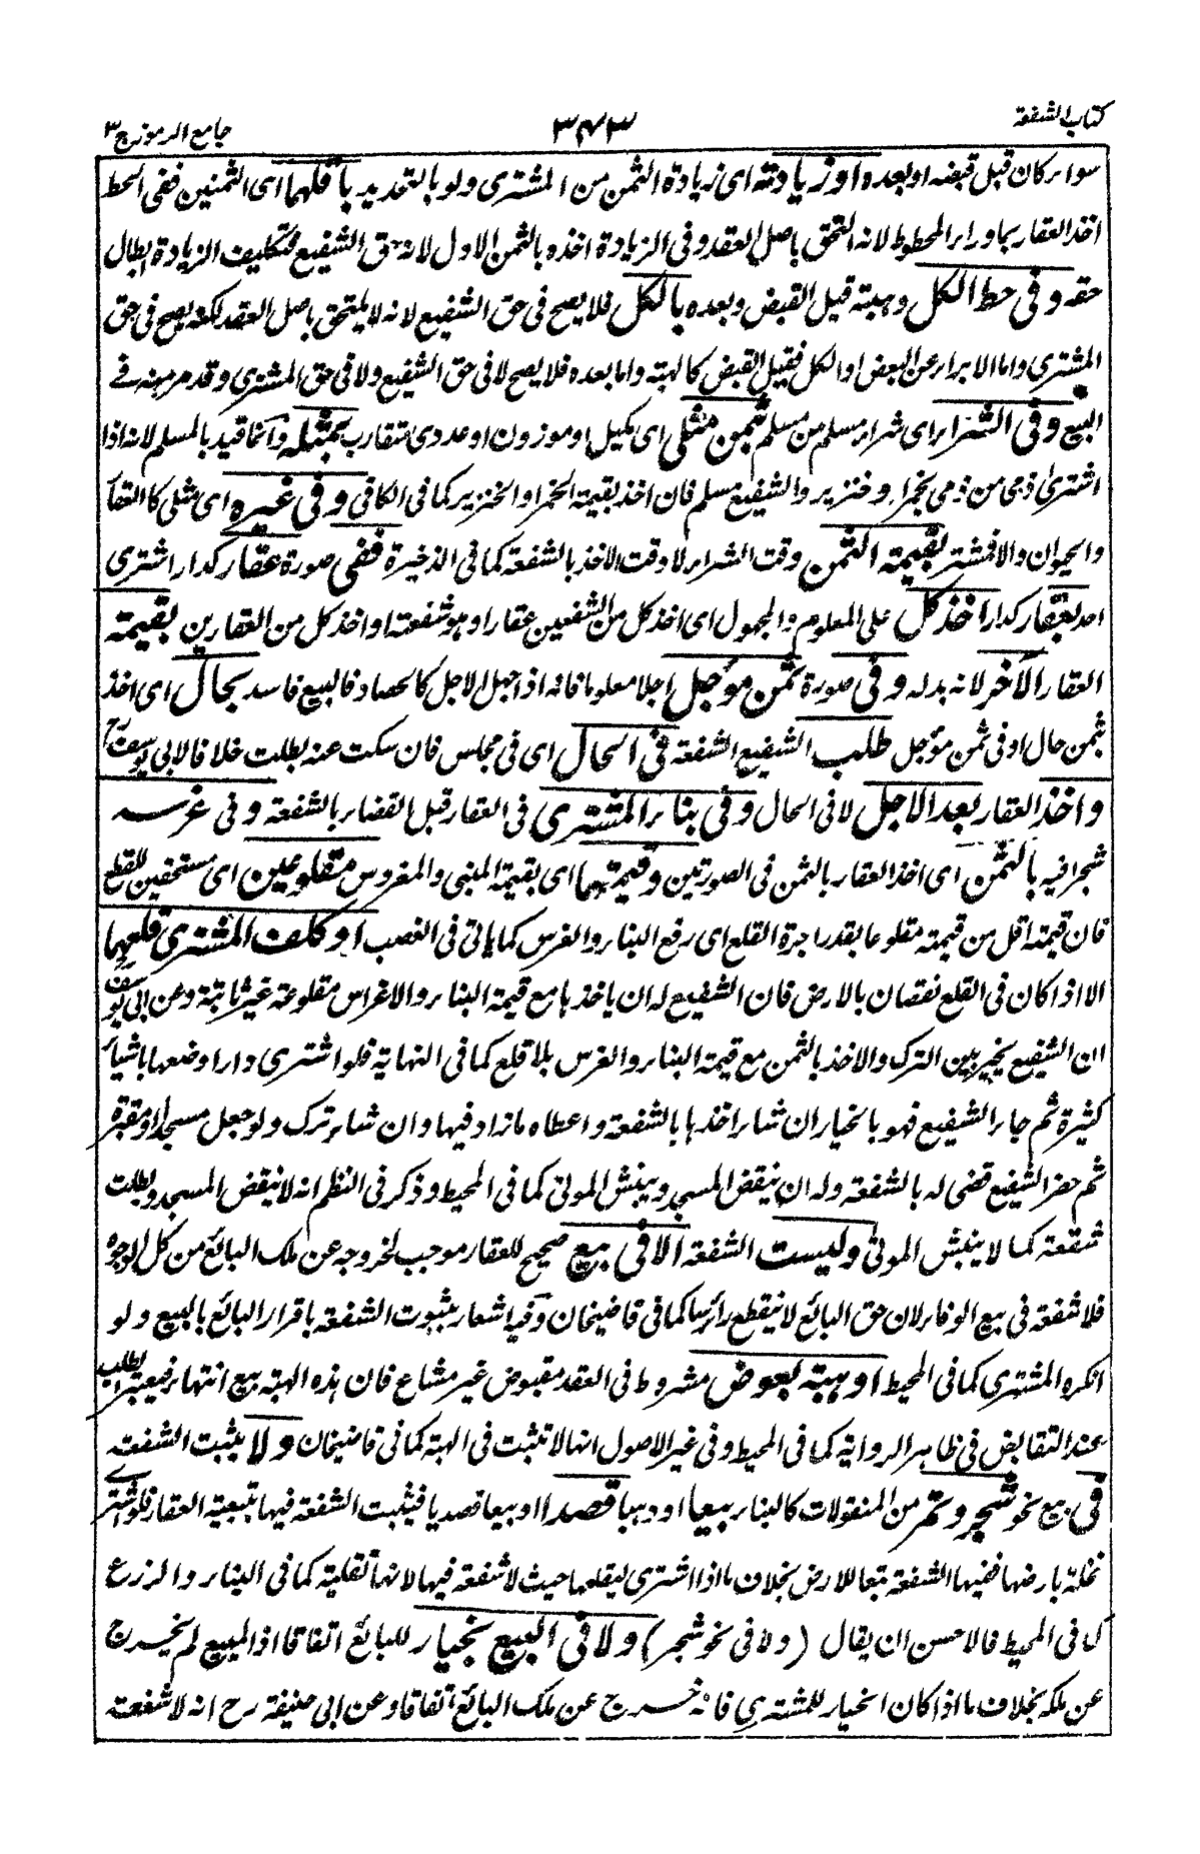 كتاب الشفعة
٣٤٣
جامع الرموز ج ٣
سواء كان قبل قبضه او بعده او زيادته اى زيادة الثمن من المشترى ولو بالتجديد باقلهما اى الثمنين ففى الحط
اخذ العقار بما وراء المحطوط لانه التحق باصل العقد وفى الزيادة اخذه بالثمن الاول لانه حق الشفيع فتكليف الزيادة ابطال
حقه وفى حط الكل وهبته قبل القبض وبعده بالكل فلا يصح فى حق الشفيع لانه لا يلتحق باصل العقد لكنه يصح فى حق
المشترى واما الابراء عن البعض او الكل فقبل القبض كالهبة واما بعده فلا يصح لا فى حق الشفيع ولا فى حق المشترى وقد مر منه فى
البيع وفى الشراء اى شراء مسلم من مسلم بثمن مثلى اى مكيل او موزون او عددى متقارب بمثله وانما قيد بالمسلم لانه اذا
اشترى ذمى من ذمى بخمر او خنزير والشفيع مسلم فان اخذ بقيمة الخمر والخنزير كما فى الكافى وفى غيره اى مثلى كالعقار
والحيوان والاقمشة بقيمة الثمن وقت الشراء لا وقت الاخذ بالشفعة كما فى الذخيرة ففى صورة عقار كدار اشترى
احد بعقار كدار اخذ كل على المعلوم والمجهول اى اخذ كل من الشفيعين عقارا وهو شفعته او اخذ كل من العقارين بقيمة
العقار الآخر لانه بدله وفى صورة ثمن مؤجل اجلا معلوما فانه اذا جهل الاجل كالحصاد فالبيع فاسد بحال اى اخذ
بثمن حال او فى ثمن مؤجل طلب الشفيع الشفعة فى الحال اى فى مجلس فان سكت عنه بطلت خلافا لابى يوسف رح
واخذ العقار بعد الاجل لا فى الحال وفى بناء المشترى فى العقار قبل القضاء بالشفعة وفى غرسه
شجرا فيه بالثمن اى اخذ العقار بالثمن فى الصورتين وقيمتهما اى بقيمة المبنى والمغروس مقلوعين اى مستحقين للقلع
فان قيمته اقل من قيمته مقلوعا بقدر اجرة القلع اى رفع البناء والغرس كما ياتى فى الغصب او كلف المشترى قلعهما
الا اذا كان فى القلع نقصان بالارض فان الشفيع له ان ياخذها مع قيمة البناء والاغراس مقلوعة غير ثابتة وعن ابى يوسف
ان الشفيع يخير بين الترك والاخذ بالثمن مع قيمة البناء والغرس بلا قلع كما فى النهاية فلو اشترى دارا وصنعها باشياء
كثيرة ثم جاء الشفيع فهو بالخيار ان شاء اخذها بالشفعة واعطاه ما زاد فيها وان شاء ترك ولو جعل مسجدا او مقبرة
ثم حضر الشفيع قضى له بالشفعة وله ان ينقض المسجد وينبش الموتى كما فى المحيط وذكر فى النظم انه لا ينقض المسجد وبطلت
شفعته كما لا ينبش الموتى وليست الشفعة الا فى بيع صحيح للعقار موجب لخروجه عن ملك البائع من كل الوجوه
فلا شفعة فى بيع الوفاء لان حق البائع لا ينقطع راسا كما فى قاضيخان وفيه اشعار بثبوت الشفعة باقرار البائع بالبيع ولو
انكره المشترى كما فى المحيط او هبة بعوض مشروط فى العقد مقبوض غير مشاع فان هذه الهبة بيع انتهاء فيعتبر الطلب
عند التقابض فى ظاهر الرواية كما فى المحيط وفى غير الاصول انها لا تثبت فى الهبة كما فى قاضيخان ولا يثبت الشفعة
فى بيع نحو شجر وثمر من المنقولات كالبناء بيعا او وهبا قصدا او بيعا قصديا فيثبت الشفعة فيها بتبعية العقار فلو اشترى
نخلة بارضها ففيها الشفعة تبعا للارض بخلاف ما اذا اشترى ليقلعها حيث لا شفعة فيها لانها نقلية كما فى البناء والزرع
كما فى المحيط فالاحسن ان يقال (ولا فى نحو شجر) ولا فى البيع بخيار للبائع اتفاقا اذ المبيع لم يخرج
عن ملكه بخلاف ما اذا كان الخيار للمشترى فانه خرج عن ملك البائع اتفاقا وعن ابى حنيفة رح انه لا شفعة